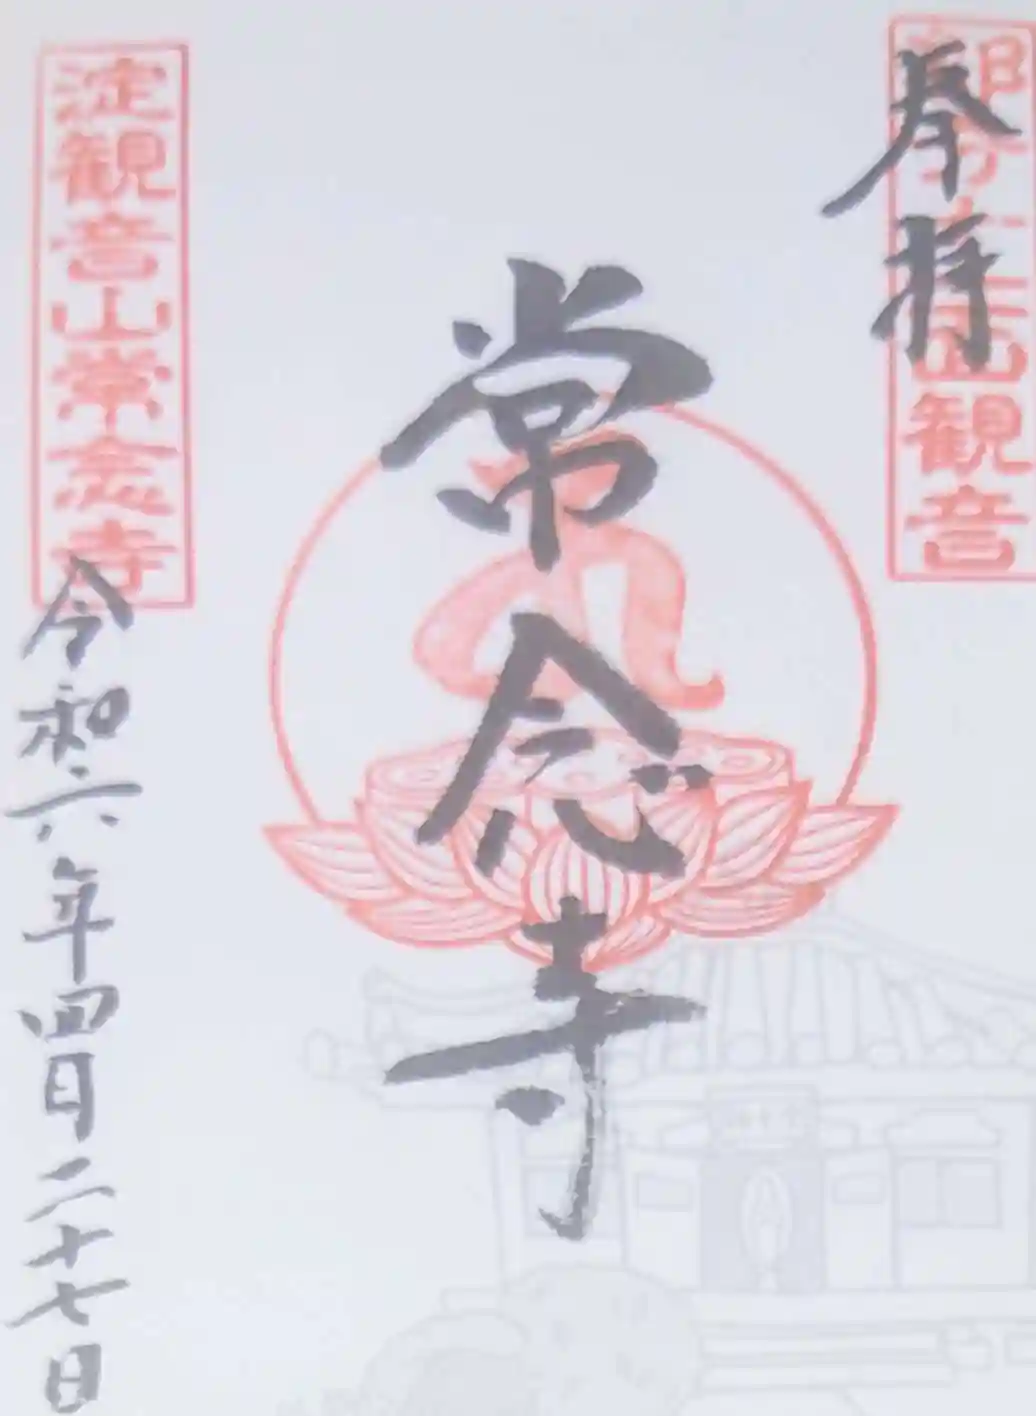 奉拝
十一面観音
常念寺
淀観音山常念寺
令和六年四月二十七日